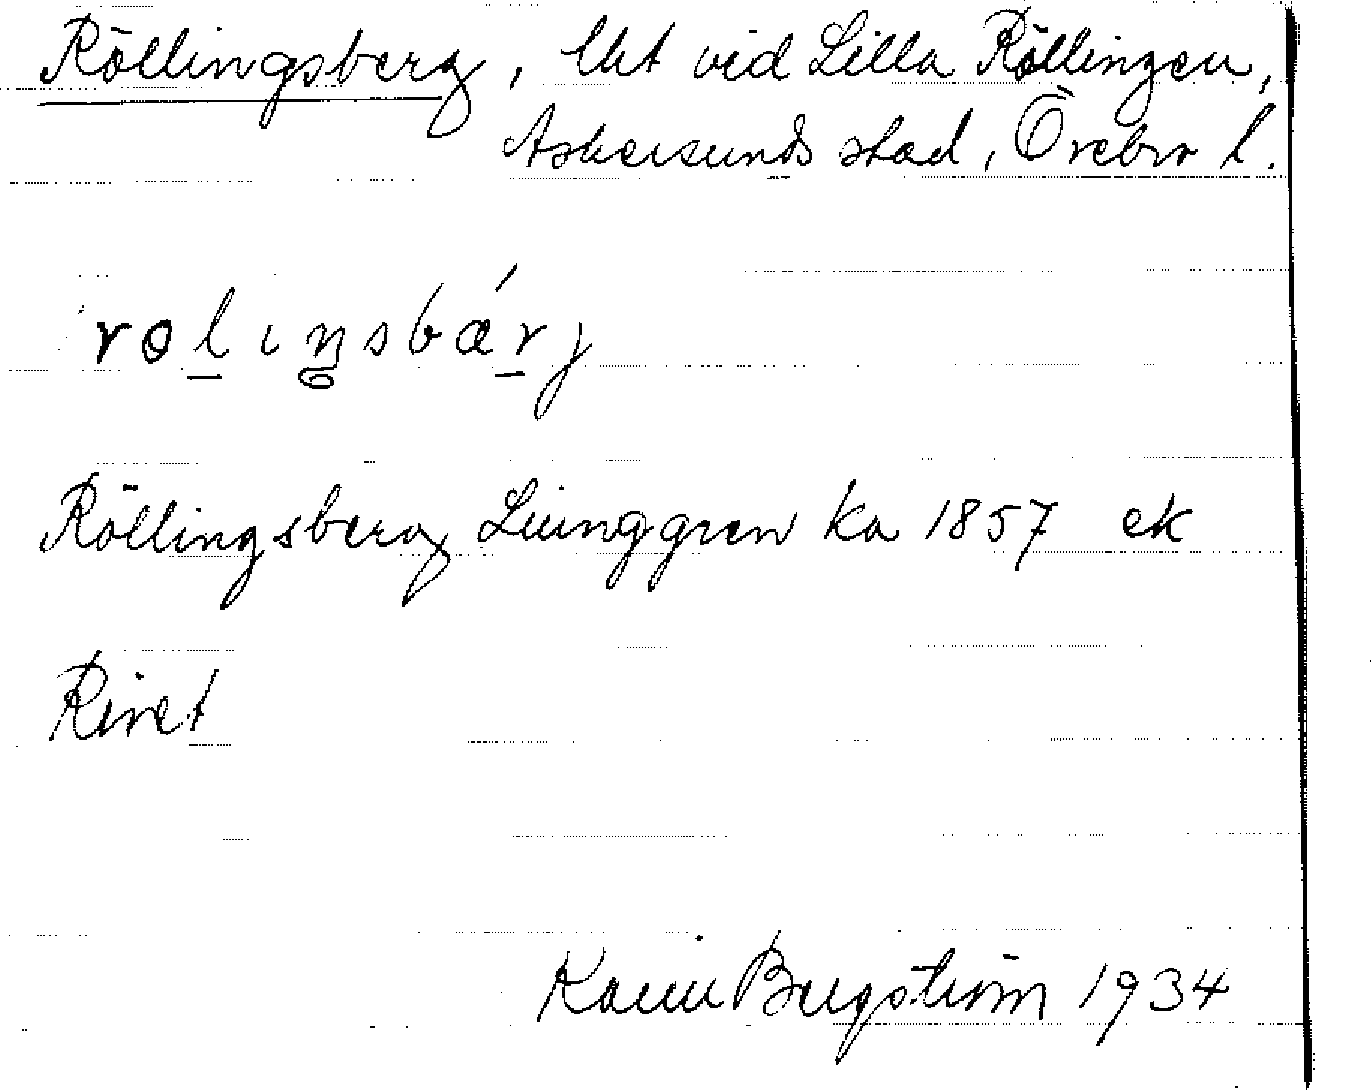 Röllingsberg, lht vid Lilla Röllingen,
Askersunds stad, Örebro l.
rɵlıŋsbǽrj
Röllingsberg Ljunggren ka 1857 ek
Rivet
Karin Bergström 1934